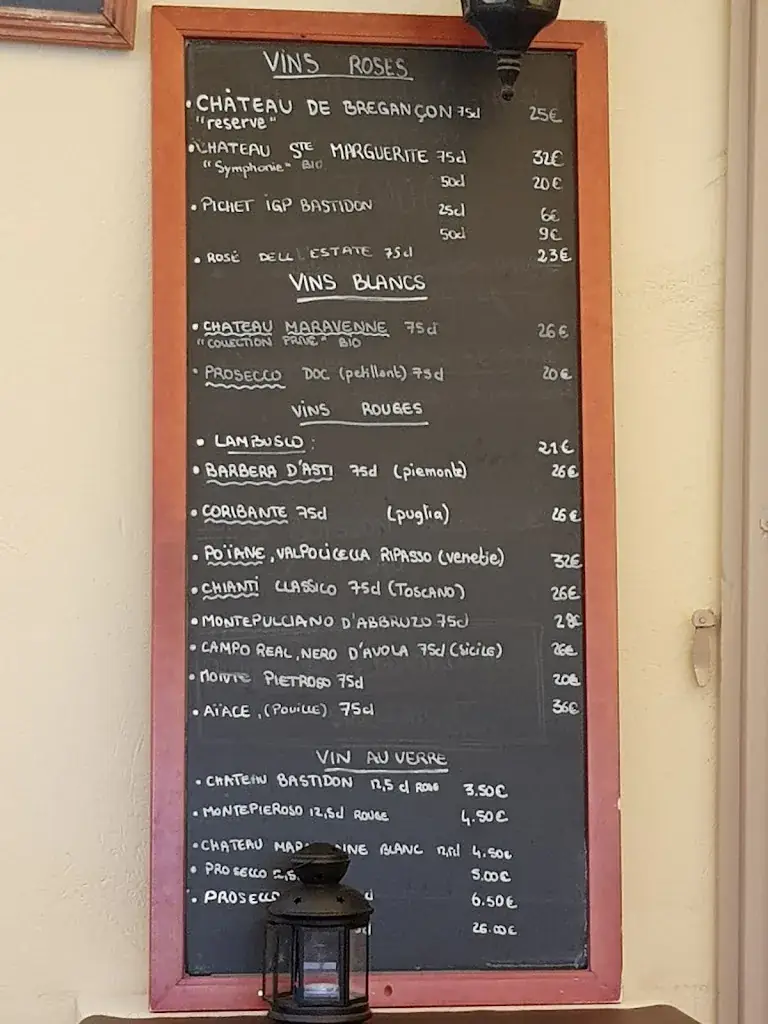 VINS ROSES
• CHÂTEAU DE BREGANÇON 75cl 25€
"reserve"
• CHATEAU STE MARGUERITE 75cl 32€
"Symphonie" BIO
50cl 20€
• PICHET IGP BASTIDON 25cl 6€
50cl 9€
• ROSÉ DELL'ESTATE 75cl 23€
VINS BLANCS
• CHATEAU MARAVENNE 75cl 26€
"COLLECTION PRIVÉ" BIO
• PROSECCO DOC (petillant) 75cl 20€
VINS ROUGES
• LAMBUSCO : 21€
• BARBERA D'ASTI 75cl (piemonte) 26€
• CORIBANTE 75cl (puglia) 26€
• POÏANE, VALPOLICELLA RIPASSO (venetie) 32€
• CHIANTI CLASSICO 75cl (TOSCANO) 26€
• MONTEPULCIANO D'ABBRUZO 75cl
• CAMPO REAL, NERO D'AVOLA 75cl (Sicile) 26€
• MONTE PIETROSO 75cl 20€
• AÏACE, (POUILLE) 75cl 36€
VIN AU VERRE
• CHATEAU BASTIDON 12,5 cl ROSE 3.50€
• MONTEPIEROSO 12,5cl ROUGE 4.50€
• CHATEAU BLANC 12,5cl 4.50€
• PROSECCO 5.00€
• PROSECCO 6.50€
26.00€